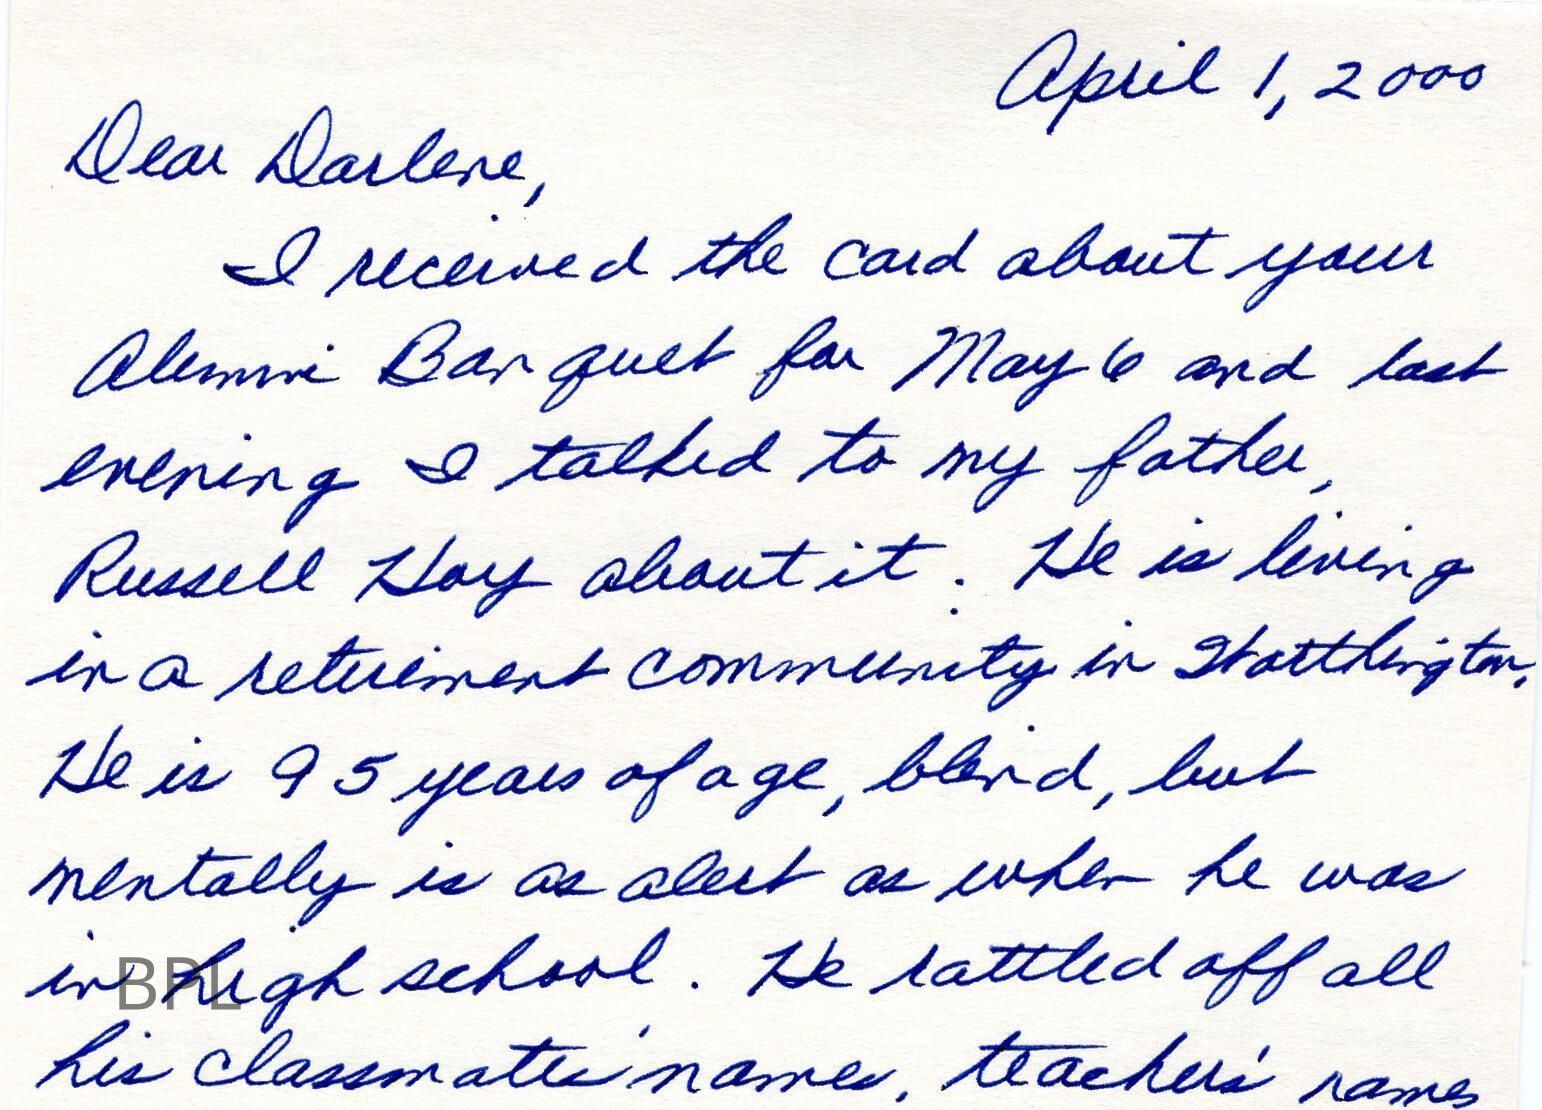 April 1, 2000
Dear Darlene,
I received the card about your
Alumni Banquet for May 6 and last
evening I talked to my father,
Russell Hoy about it. He is living
in a retirement community in Worthington.
He is 95 years of age, blind, but
mentally is as alert as when he was
in high school. He rattled off all
his classmates' names, teacher's names
BPL